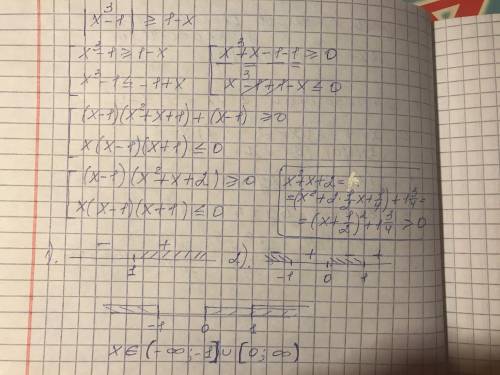 |x³-1| ≥ 1-x
[ x³-1 ≥ 1-x [ x³+x-1-1 ≥ 0
[ x³-1 ≤ -1+x [ x³-1+1-x ≤ 0
[ (x-1)(x²+x+1)+(x-1) ≥ 0
[ x(x-1)(x+1) ≤ 0
[ (x-1)(x²+x+2) ≥ 0 x²+x+2=
[ x(x-1)(x+1) ≤ 0 =(x²+2·1/2x+1/4)+1 3/4=
=(x+1/2)²+1 3/4 > 0
1). - + 2). - + - +
1 -1 0 1
-1 0 1
x∈(-∞;-1]∪[0;∞)